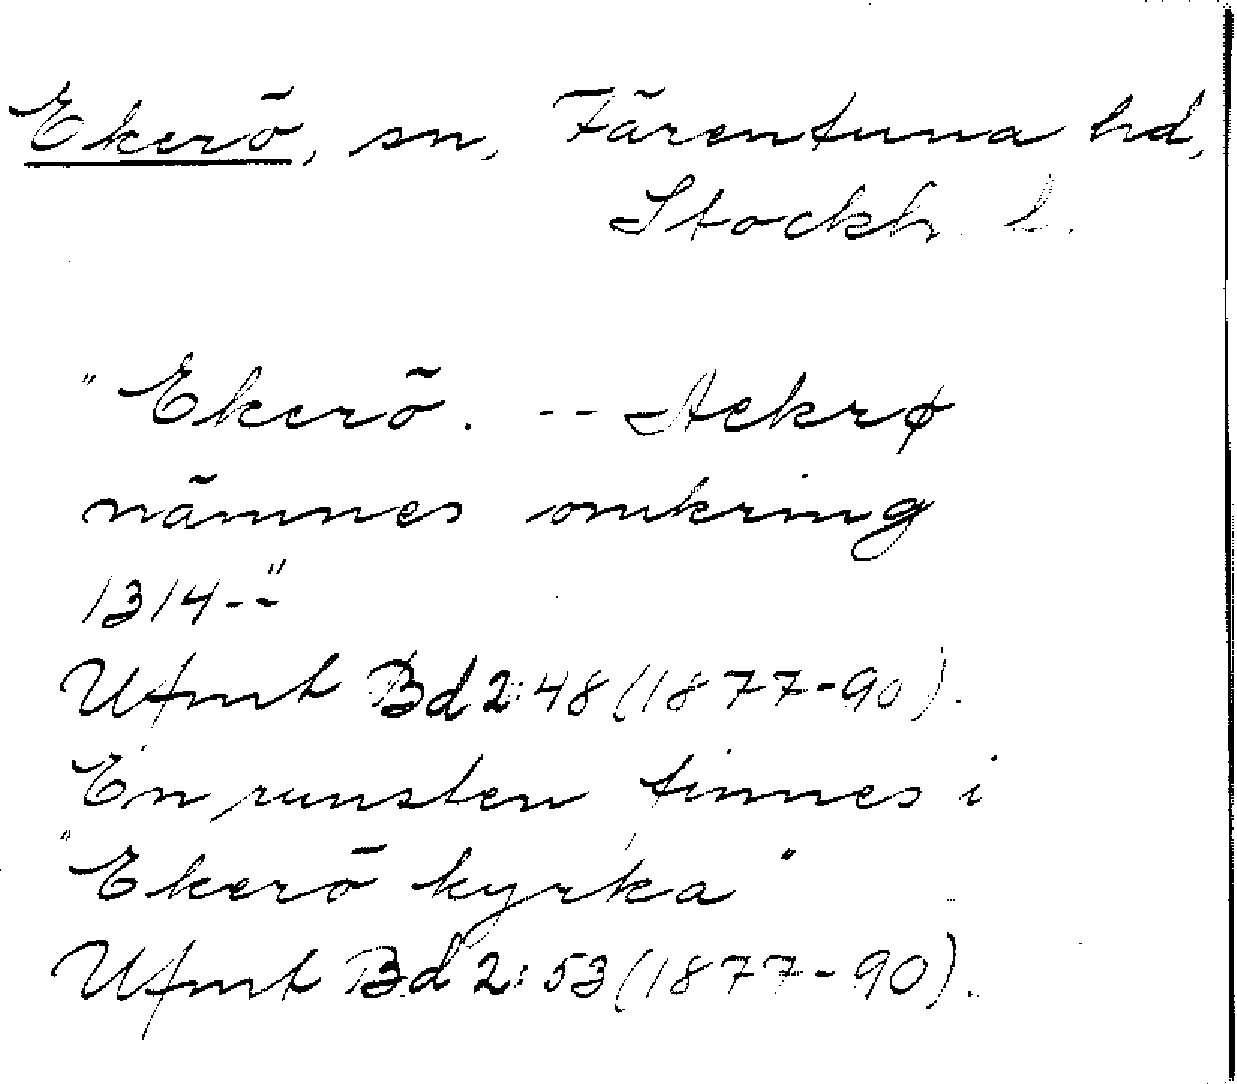 Ekerö, sn, Färentuna hd,
Stockh. l.
"Ekerö. -- Aekrø
nämnes omkring
1314--"
Ufmt Bd 2:48 (1877-90).
En runsten finnes i
"Ekerö kyrka"
Ufmt Bd 2:53 (1877-90).